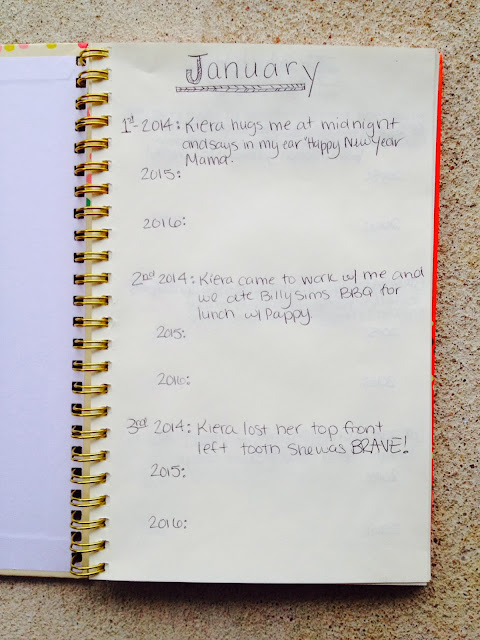 January
1st - 2014: Kiera hugs me at midnight
and says in my ear "Happy New Year
Mama".
2015:
2016:
2nd 2014: Kiera came to work w/ me and
we ate Billy Sims BBQ for
lunch w/ Pappy.
2015:
2016:
3rd 2014: Kiera lost her top front
left tooth she was BRAVE!
2015:
2016: